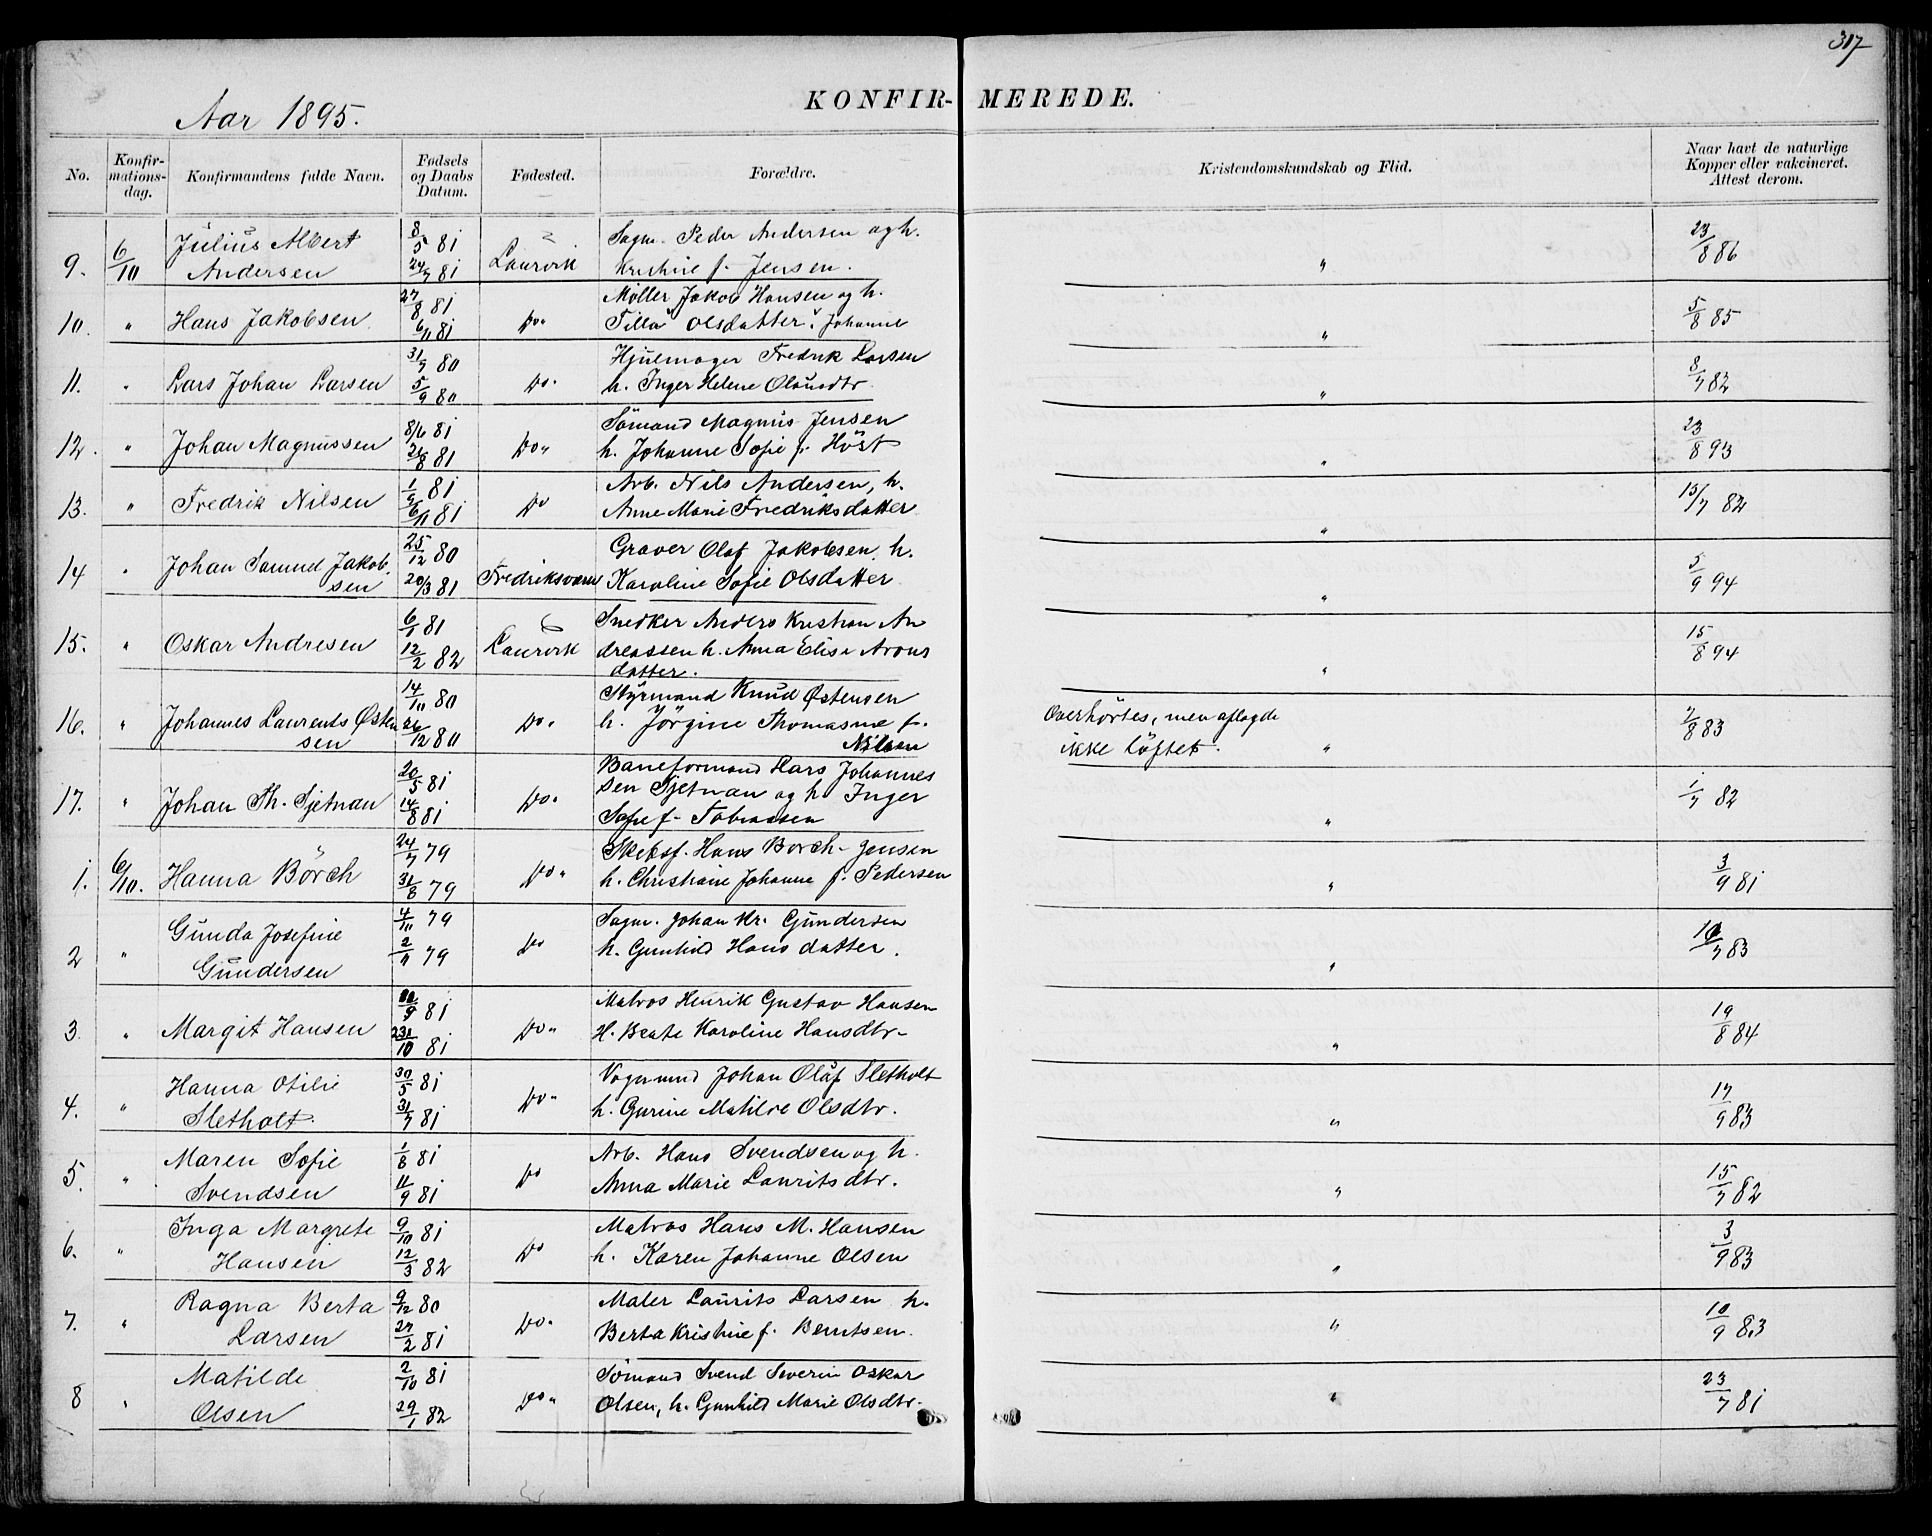 317
Aar 1895.
KONFIR- MEREDE.
No.
Konfir-
mations-
dag.
Konfirmandens fulde Navn.
Fødsels
og Daabs
Datum.
Fødested.
Forældre.
Kristendomskundskab og Flid.
Naar havt de naturlige
Kopper eller vakcineret.
Attest derom.
9. 6/10 Julius Albert Andersen 8/5 81 24/7 81 Laurvik Sagm. Peder Andersen og h. Kristine f. Jensen. " 23/8 86
10. " Hans Jakobsen 27/8 81 6/11 81 Do" Møller Jakob Hansen og h. "Tilla" Olsdatter. Johanne " 5/8 85
11. " Lars Johan Larsen 31/7 80 5/9 80 Do" Hjulmager Fredrik Larsen h. Inger Helene Olausdtr. " 8/7 82
12. " Johan Magnussen 8/6 81 21/8 81 Do" Sömand Magnus Jensen h. Johanne Sofie f. Höst " 23/8 93
13. " Fredrik Nilsen 1/9 81 6/11 81 Do Arb. Nils Andersen, h. Anne Marie Fredriksdatter " 15/7 82
14 " Johan Samuel Jakobsen 25/12 80 20/3 81 Fredriksværn Graver Olaf Jakobsen. h. Karoline Sofie Olsdatter " 5/9 94
15. " Oskar Andresen 6/1 81 12/2 82 Laurvik Snedker Anders Kristian Andreassen h. Anna Elise Aronsdatter. " 15/8 94
16. " Johannes Laurents Østensen 14/10 80 26/12 80 Do" Styrmand Knud Østensen h. Jörgine Thomasine f. Nilsen Overhörtes, men aflagde ikke löftet. " 7/8 83
17. " Johan Th. Sjetnan 20/5 81 14/8 81 Do" Baneformand Hans Johannessen Sjetnan og h. Inger Sofie f. Tobiassen " 1/7 82
1. 6/10. Hanna Börch 24/7 79 31/8 79 Do" Skibsf. Hans Borch-Jensen h. Christiane Johanne f. Pedersen " 3/9 81
2 " Gunda Josefine Gundersen 4/10 79 2/11 79 Do Sagm. Johan Kr. Gundersen h. Gunhild Hansdatter. " 10/7 83
3. " Margit Hansen 81 23/10 81 Do" Matros Henrik Gustav Hansen H. Beate Karoline Hansdtr. " 19/8 84
4. " Hanna Otilie Sletholt. 30/5 81 31/7 81 Do" Vognmand Johan Olaf Sletholt h. Gurine Matilde Olsdtr. " 17/9 83
5. " Maren Sofie Svendsen 1/8 81 11/9 81 Do Arb. Hans Svendsen og h. Anna Marie Lauritsdtr. " 15/7 82
6. " Inga Margrete Hansen 9/10 81 12/3 82 Do Matros Hans M. Hansen h. Karen Johanne Olsen " 3/9 83
7. " Ragna Berta Larsen 9/12 80 27/2 81 Do" Maler Laurits Larsen h. Berta Kristine f. Berntsen. " 10/9 83
8 " Matilde Olsen 2/10 81 29/1 82 Do" Sömand Svend Severin Oskar Olsen, h. Gunhild Marie Olsdtr. " 23/7 81